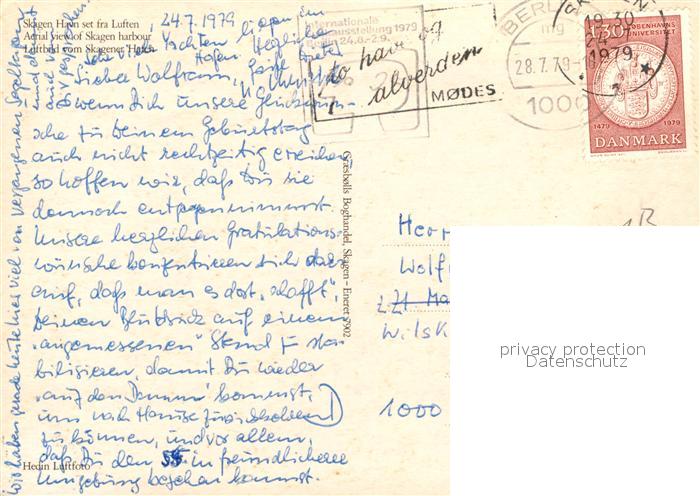 Skagen Havn set fra Luften
Aerial view of Skagen harbour
Luftbild vom Skagener Hafen
24.7.1979
Lieber Wolfram,
wenn Dich unsere Glückwün-
sche zu Deinem Geburtstag
auch nicht rechtzeitig erreichen
so hoffen wir, daß Du sie
dennoch entgegennimmst.
Unsere herzlichen Gratulations-
wünsche konzentrieren sich
auf, daß man es dort "schafft",
Deinen Blutdruck auf einem
"angemessenen" Stand zu sta-
bilisieren, damit Du wieder
"auf den Damm" kommst,
um nach Hause
zu können, und vor allem,
daß Du den 55. in freundlicherer
Umgebung begehen kannst.
Wir haben gerade heute hier viel von vergangenen
Hedin Luftfoto
Græsbølls Boghandel, Skagen - Eneret 7902
Internationale
Funkausstellung 1979
Berlin 24.8.-2.9.
to hav og
alverden
MØDES
BERLIN
mg
28.7.79
1000
SKAGEN
19.30
24.7
1979
130
KØBENHAVNS
UNIVERSITET
1479 1979
DANMARK
Herr
Wolf
1000
privacy protection
Datenschutz